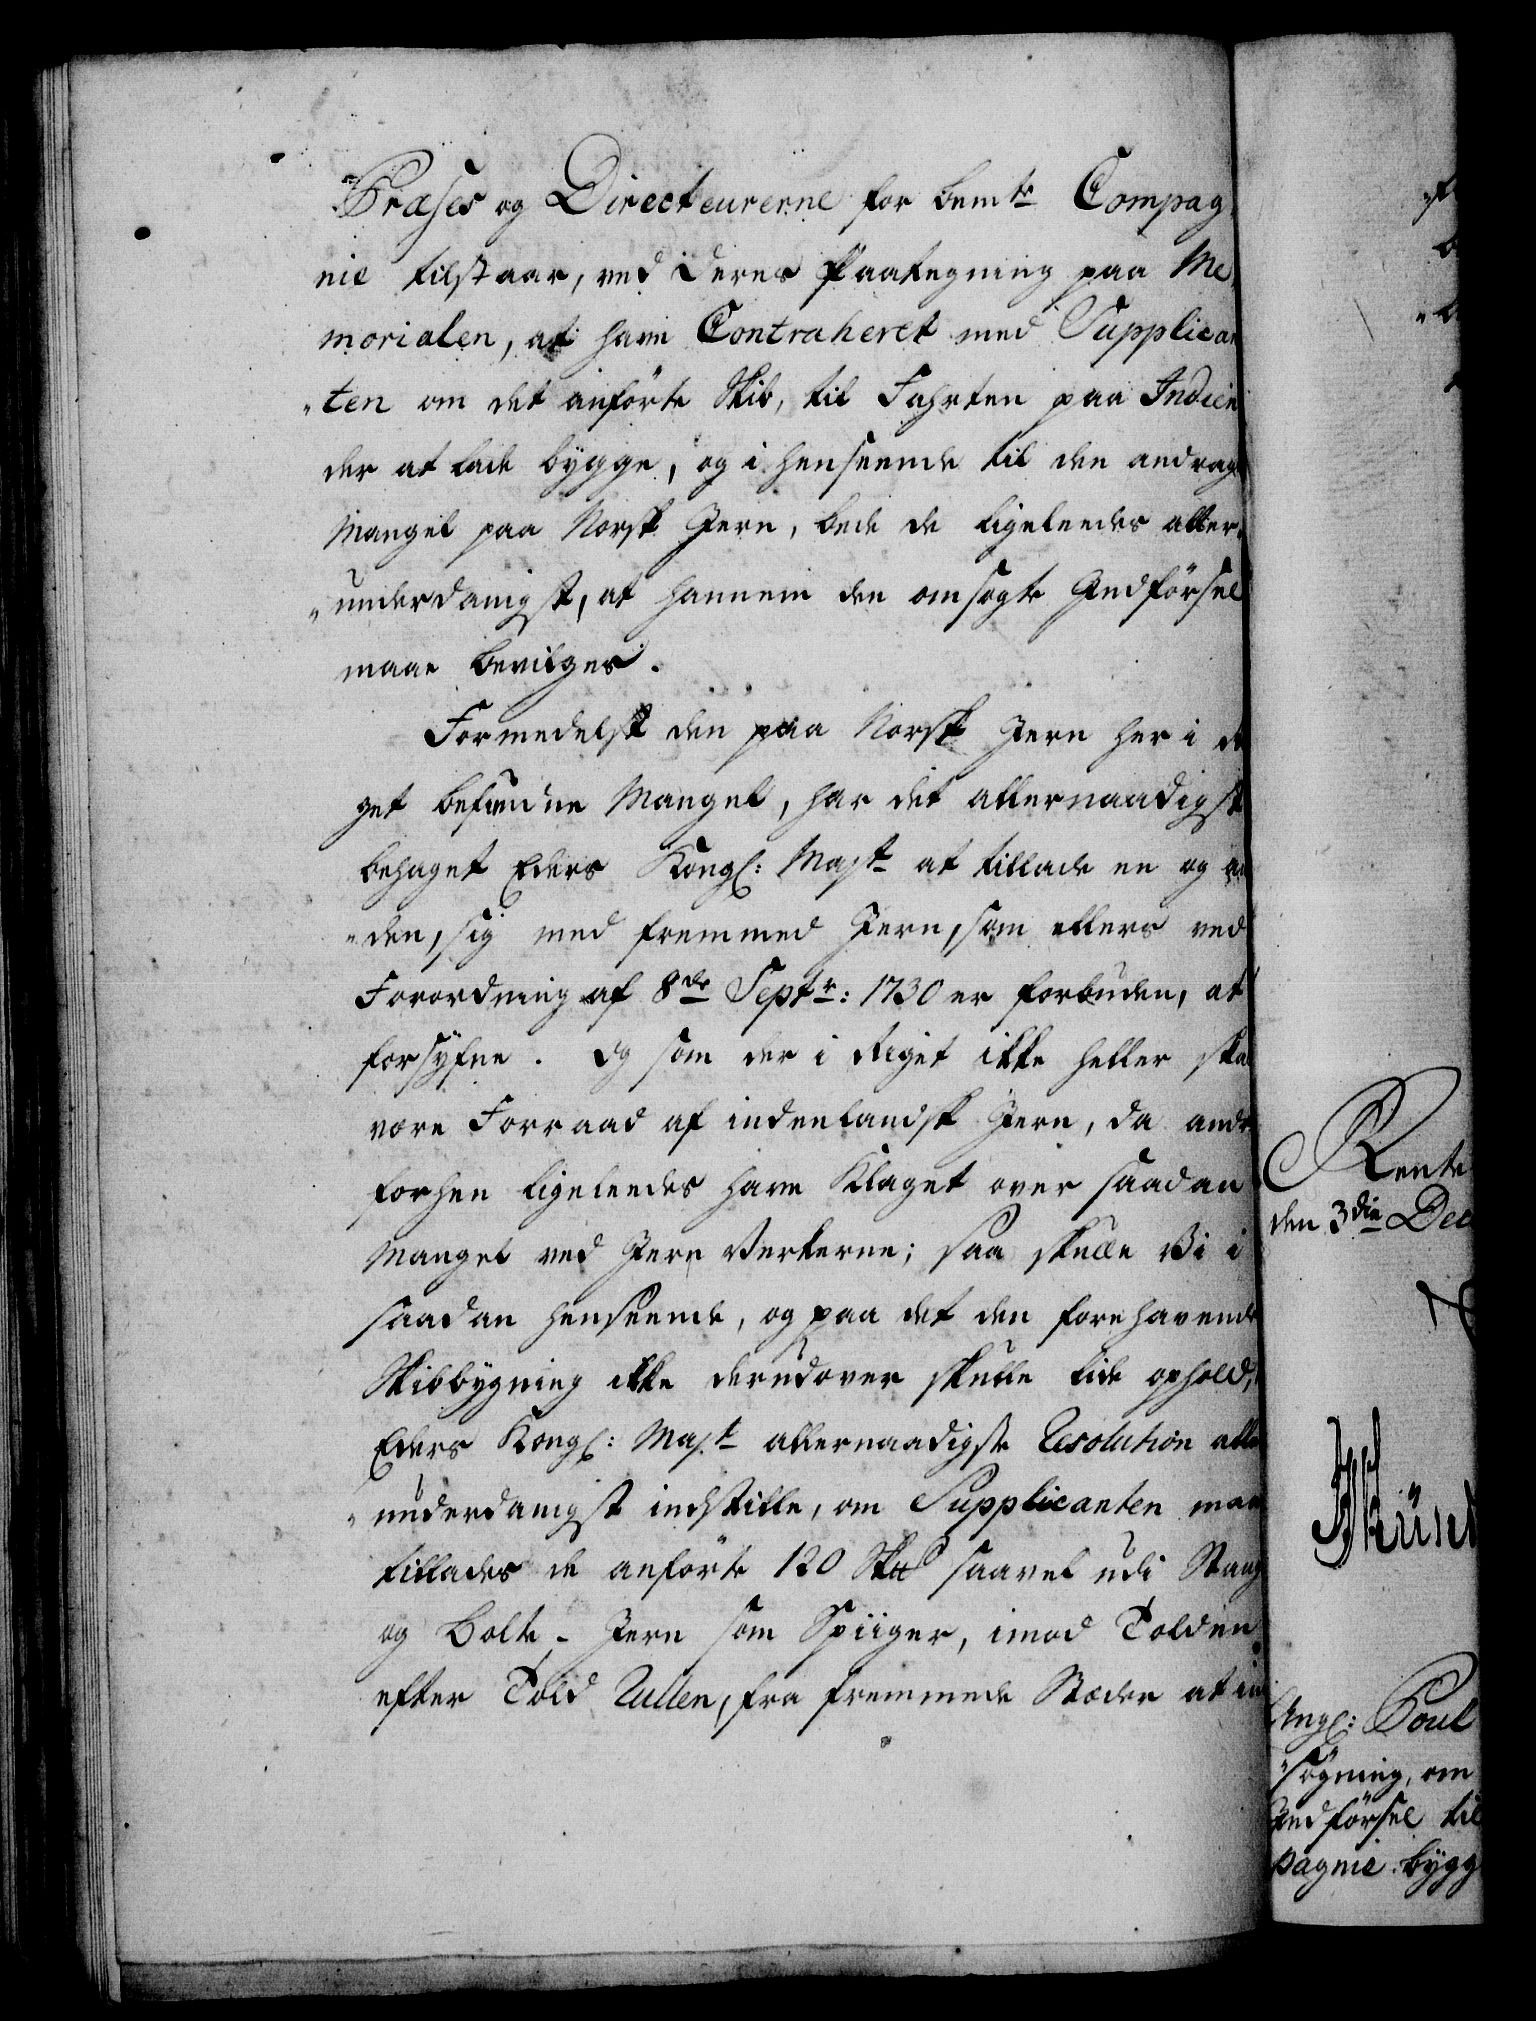 Præses og Directeurerne for bem:te Compag
nie tilstaar, ved deres Paategning paa Me
morialen, at have Contraheret med Supplican
"ten om det anförte Skib, til Fahrten paa Indien
der at lade bygge, og i henseende til den andragne
Mangel paa Norsk Jern, bede de ligeleedes aller
"underdanigst, at hannem den omsögte Indförsel
maae bevilges.
Formedelst den paa Norsk Jern her i
get befundne Mangel, har det allernaadigst
behaget Eders Kongl: Maj:t at tillade en og an
"den, sig med fremmed Jern, som ellers ved
Forordning af 8de Septr: 1730 er forbuden, at
forsyne. Og som der i Riget ikke heller skal
være Forraad af indenlandsk Jern, da andre
forhen ligeleedes have klaget over saadan
Mangel ved Jern Verkerne; saa skulle Vi i
saadan henseende, og paa det den forehavende
Skibbygning ikke derudover skulle lide ophold,
Eders Kongl: Maj:t allernaadigste Resolution aller
"underdanigst indstille, om Supplicanten maa
tillades de anförte 120 Sk℔ saavel udi Stang
og Bolte-Jern som Spiiger, imod Tolden
efter Told Rullen, fra fremmede Stæder at ind
Rente
den 3die Dec
Angl: Poul
"sögning, om
Indförsel til
pagnie bygg